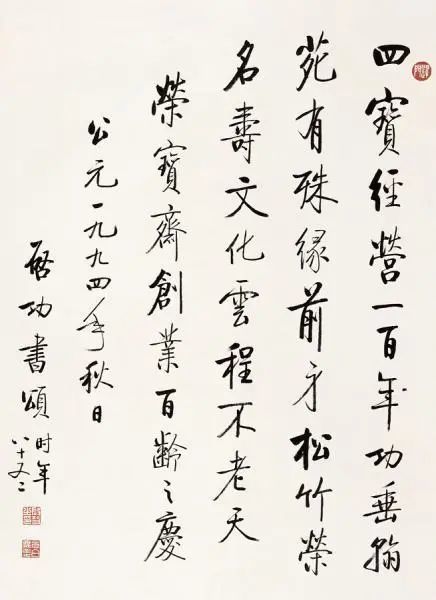 四寶經營一百年功垂翰
苑有殊緣前身松竹榮
名壽文化雲程不老天
榮寶齋創業百齡之慶
公元一九九四年秋日
啟功書頌
时年
八十又二